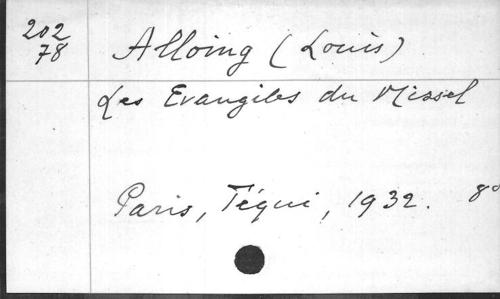 202
78
Alloing (Louis)
Les Evangiles du Missel
Paris, Téqui, 1932. 8°